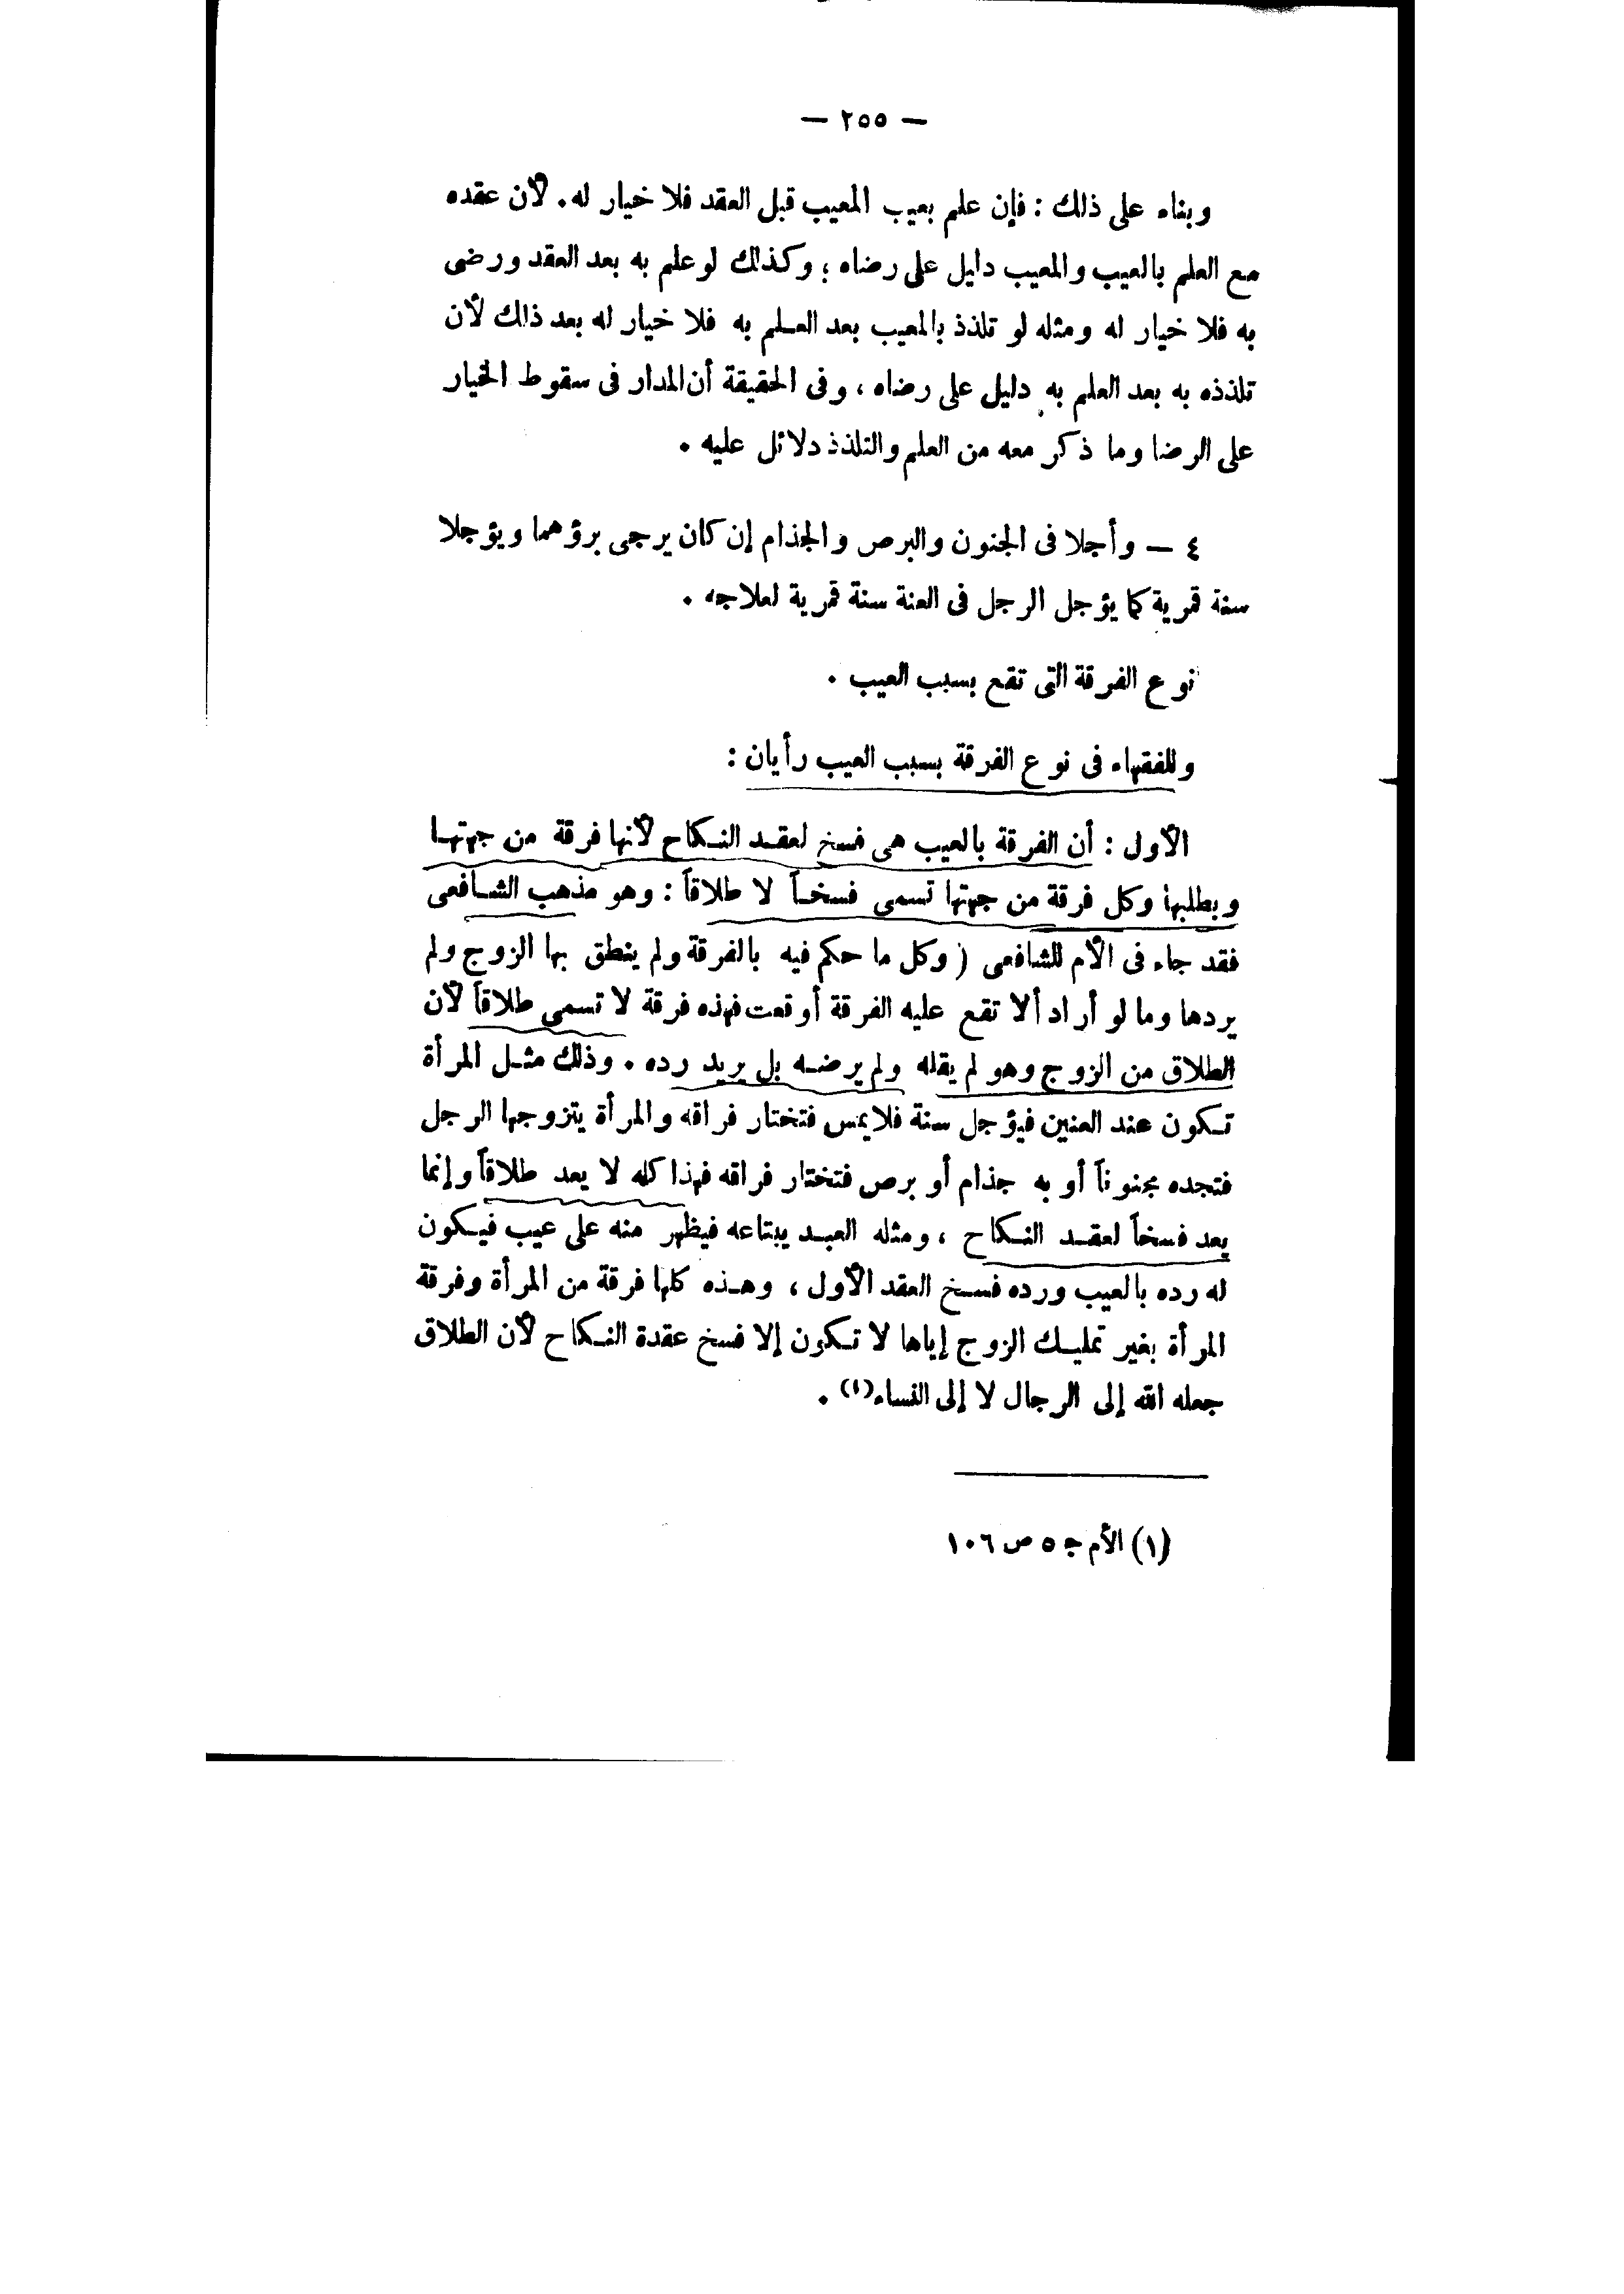 — ٢٥٥ —
وبناء على ذلك : فإن علم بعيب المعيب قبل العقد فلا خيار له . لأن عقده
مع العلم بالعيب والمعيب دليل على رضاه ؛ وكذلك لو علم به بعد العقد ورضى
به فلا خيار له ومثله لو تلذذ بالمعيب بعد العلم به فلا خيار له بعد ذلك لأن
تلذذه به بعد العلم به دليل على رضاه ، وفى الحقيقة أن المدار فى سقوط الخيار
على الرضا وما ذكر معه من العلم والتلذذ دلائل عليه .
٤ — وأجلا فى الجنون والبرص والجذام إن كان يرجى برؤهما ويؤجلا
سنة قمرية كما يؤجل الرجل فى العنة سنة قمرية لعلاجه .
نوع الفرقة التى تقع بسبب العيب .
وللفقهاء فى نوع الفرقة بسبب العيب رأيان :
الأول : أن الفرقة بالعيب هى فسخ لعقد النكاح لأنها فرقة من جهتها
وبطلبها وكل فرقة من جهتها تسمى فسخاً لا طلاقاً : وهو مذهب الشافعى
فقد جاء فى الأم للشافعى ( وكل ما حكم فيه بالفرقة ولم ينطق بها الزوج ولم
يردها وما لو أراد ألا تقع عليه الفرقة أوقعت فهذه فرقة لا تسمى طلاقاً لأن
الطلاق من الزوج وهو لم يقله ولم يرضه بل يريد رده . وذلك مثل المرأة
تكون عند العنين فيؤجل سنة فلا يمس فتختار فراقه والمرأة يتزوجها الرجل
فتجده مجنوناً أو به جذام أو برص فتختار فراقه فهذا كله لا يعد طلاقاً وإنما
يعد فسخاً لعقد النكاح ، ومثله العبد يبتاعه فيظهر منه على عيب فيكون
له رده بالعيب ورده فسخ العقد الأول ، وهذه كلها فرقة من المرأة وفرقة
المرأة بغير تمليك الزوج إياها لا تكون إلا فسخ عقدة النكاح لأن الطلاق
جعله الله إلى الرجال لا إلى النساء (١) .
(١) الأم ج ٥ ص ١٠٦